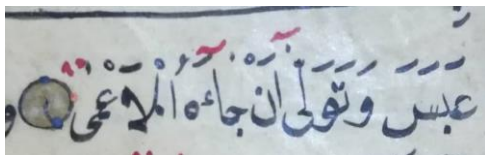 عَبَسَ وَتَوَلَّىٰ أَنْ جَآءَهُ الْأَعْمَىٰ